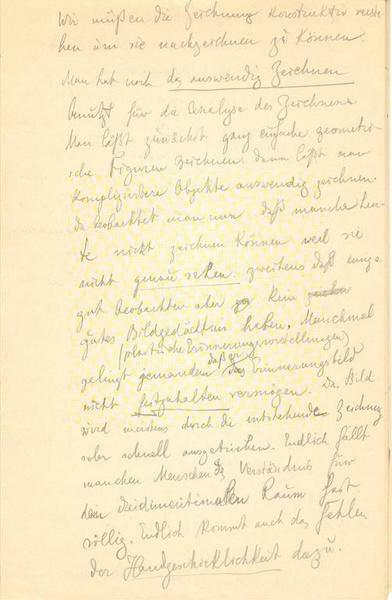 Wir müßen die Zeichnung konstruktiv verste-
hen um sie nachzeichnen zu können.
Man hat noch das auswendig Zeichnen
benützt für die Analyse des Zeichnens
Man läßt zunächst ganz einfache geometri-
sche Figuren zeichnen. dann läßt man
kompliziertere Objekte auswendig zeichnen.
da beobachtet man nun daß manche Leu-
te nicht zeichnen können weil sie
nicht genau sehen. zweitens daß einige
gut beobachten aber kein
gutes Bildgedächtnis haben. Manchmal
(plastische Erinnerungsvorstellungen)
gelingt jemanden daß er das Erinnerungsbild
nicht festgehalten vermögen. Das Bild
wird meistens durch die entstehende Zeichnung
sehr schnell ausgestrichen. Endlich fällt
manchen Menschen das Verständnis für
den dreidimentionalen Raum fast
völlig. Endlich kommt auch das Fehlen
der Handgeschicklichkeit dazu.